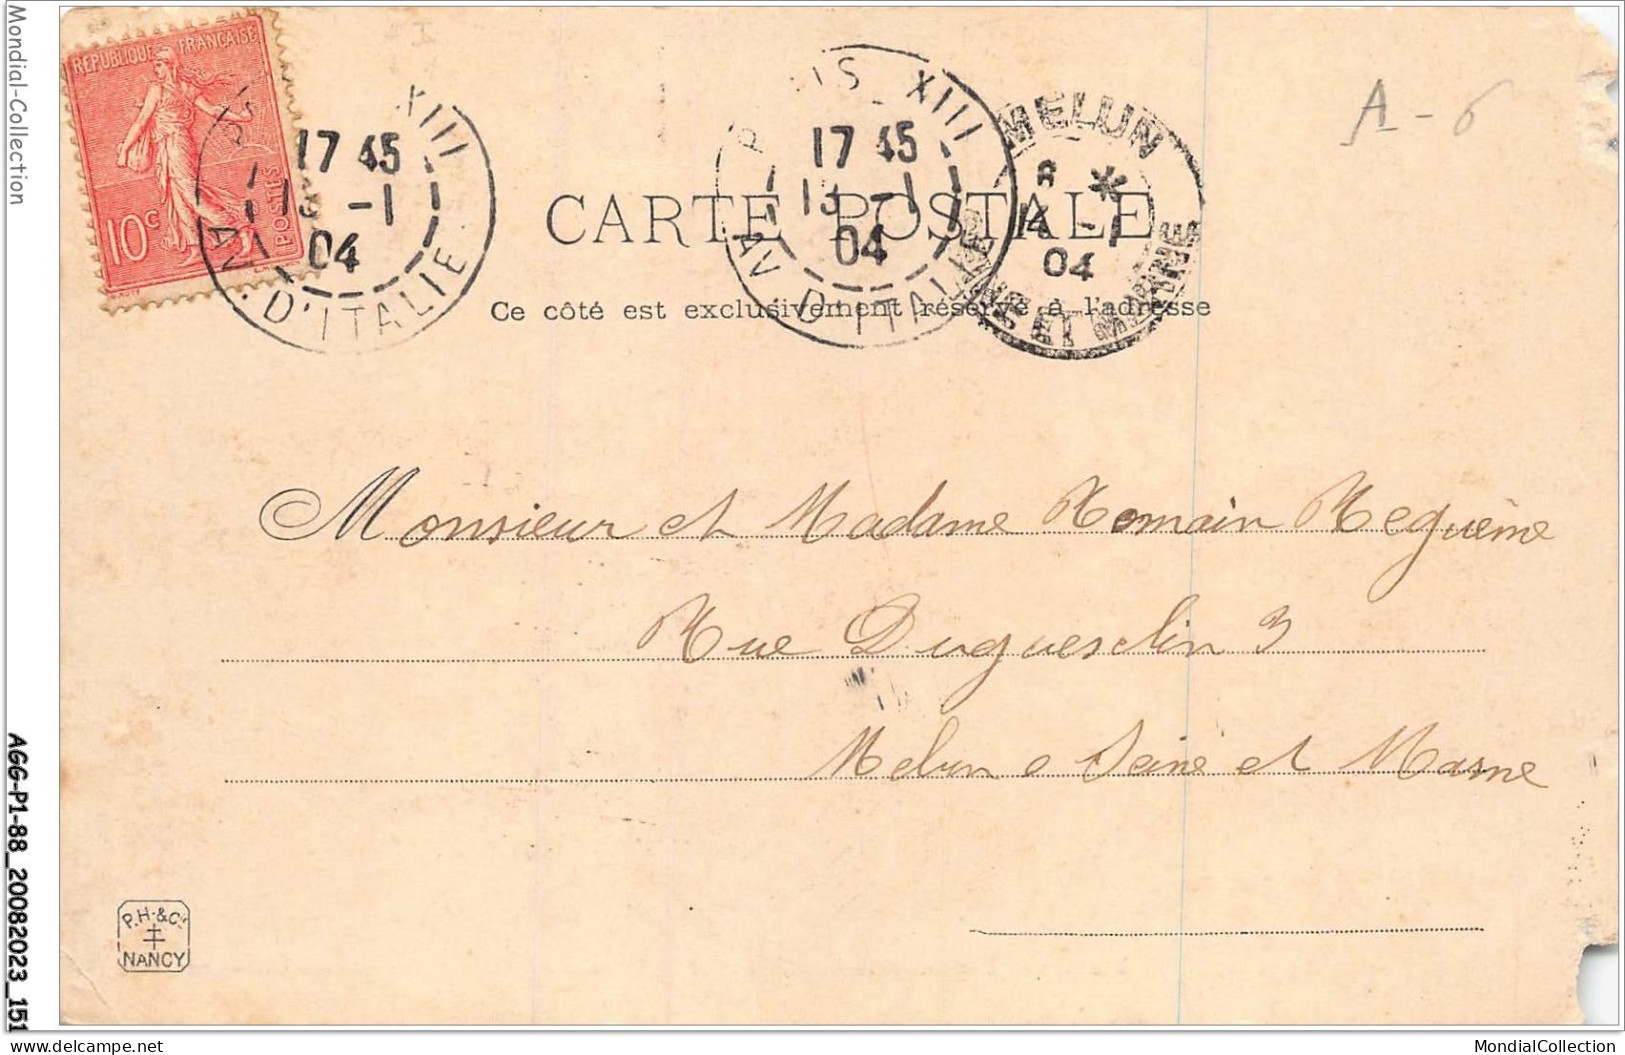 Mondial-Collection
REPUBLIQUE FRANÇAISE
10c
POSTES
XIII
17 45
-1
04
AV. D'ITALIE
PARIS XIII
17 45
13 -1
04
AV. D'ITALIE
MELUN
14 -1
04
SEINE ET MARNE
A-6
CARTE POSTALE
Ce côté est exclusivement réservé à l'adresse
Monsieur et Madame Romain Reguème
Rue Duguesclin 3
Melun Seine et Marne
P.H.&Cie
NANCY
AGG-P1-88_20082023_151
www.delcampe.net
MondialCollection